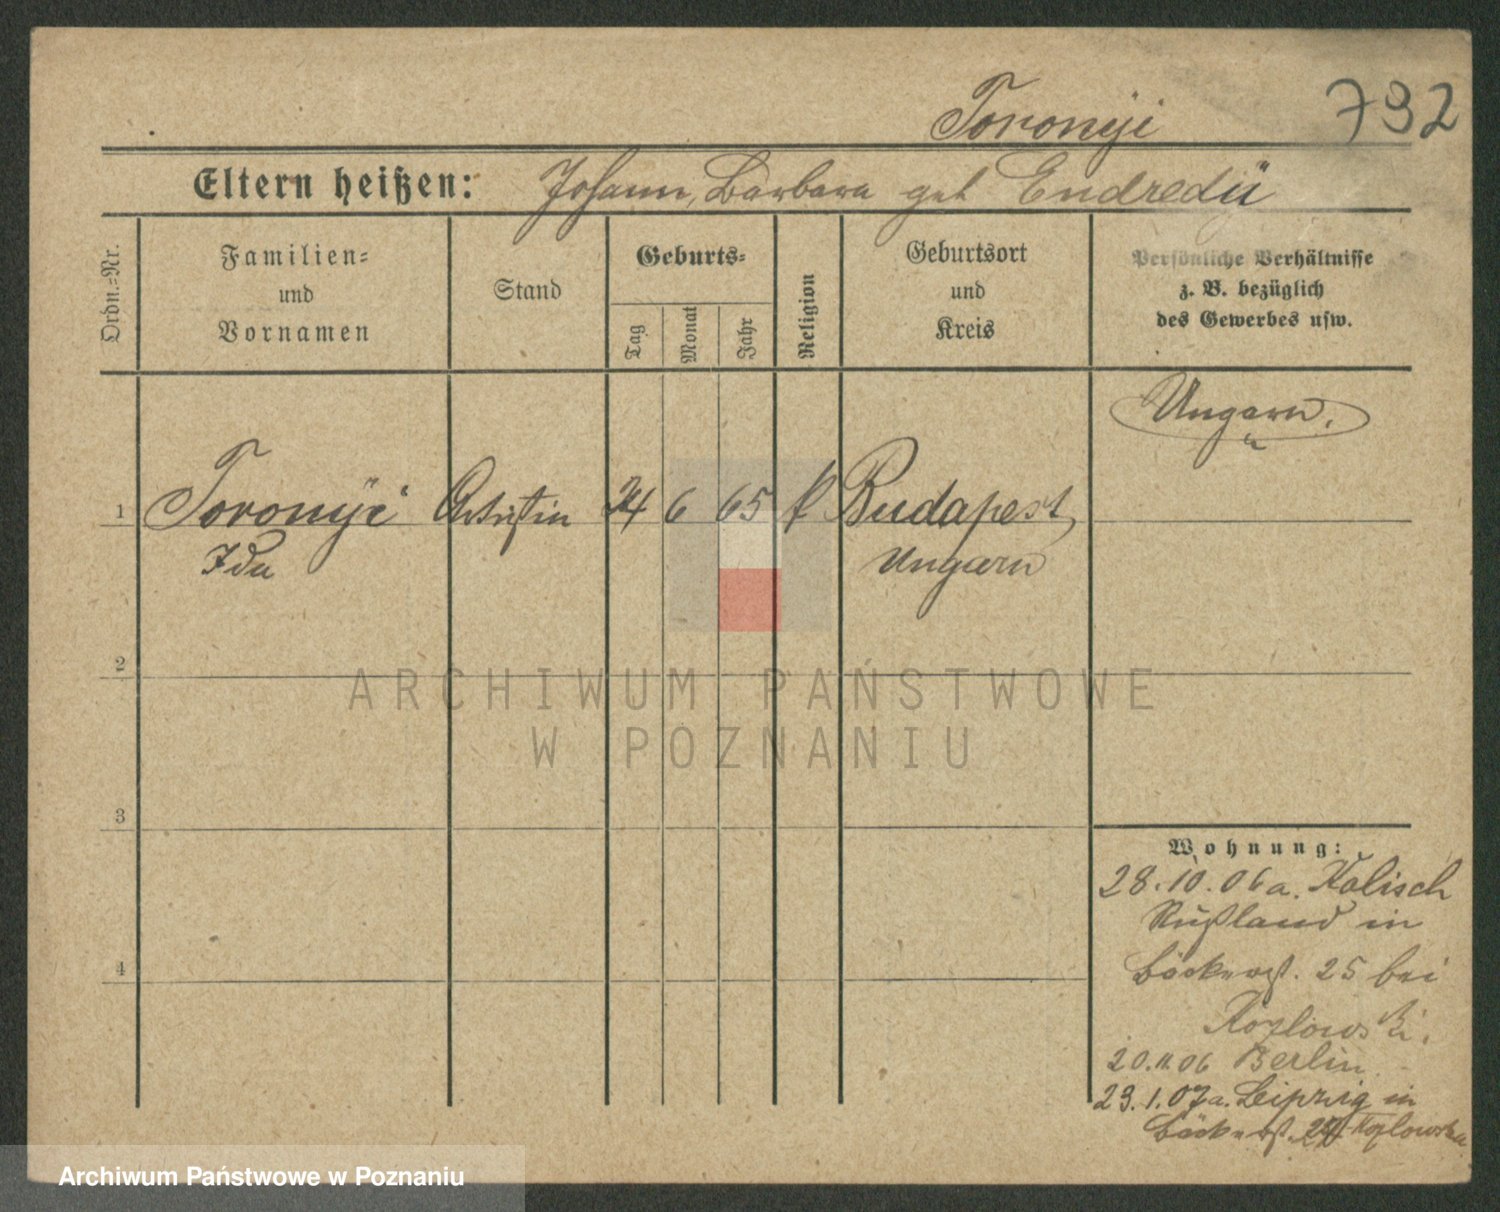 Toronyi 792
Eltern heißen: Johann, Barbara geb Endredü
Ordn.=Nr.
Familien=
und
Vornamen
Stand
Geburts=
Tag
Monat
Jahr
Religion
Geburtsort
und
Kreis
Persönliche Verhältnisse
z. B. bezüglich
des Gewerbes usw.
Ungarn.
1 Toronyi Artistin 24 6 65 k Budapest,
Ida Ungarn
2
ARCHIWUM PAŃSTWOWE
W POZNANIU
3
Wohnung:
28.10.06 a. Kalisch
Rußland in
Bäckerst. 25 bei
Kozlowski.
4
20.11.06 Berlin.
23.1.07 a. Leipzig in
Bäckerst. Kozlowska
Archiwum Państwowe w Poznaniu